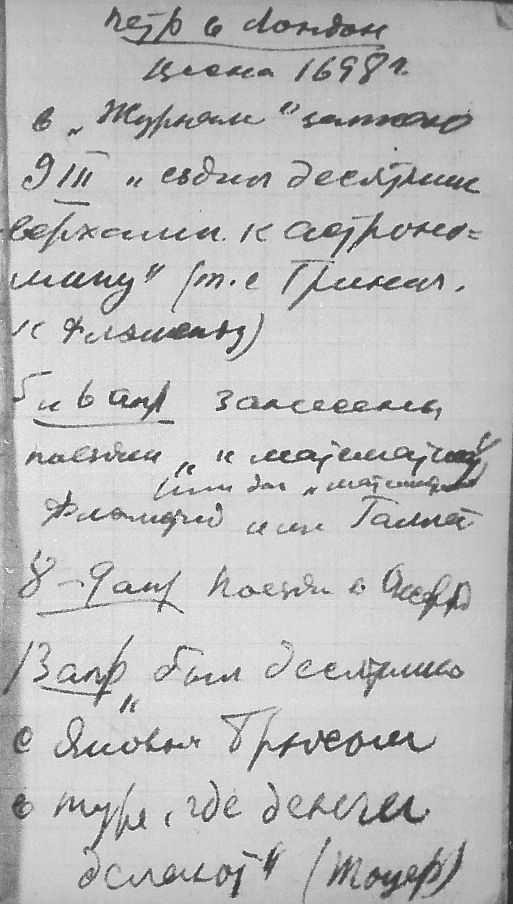 Петр в Лондон
весна 1698 г.
в „Журнале"
9 III „ездил десятник
верхами к астроно=
мику" (т.е Гринич.
к Флэмстэд)
5 и 6 апр занесены
поездки „к математику"
(или был „математик
Флэмстид или Галлей
8–9 апр Поездк в Оксфрд
13 апр „был десятник
с Яковом Брюсом
в туре, где деньги
делают" (Тоуер)